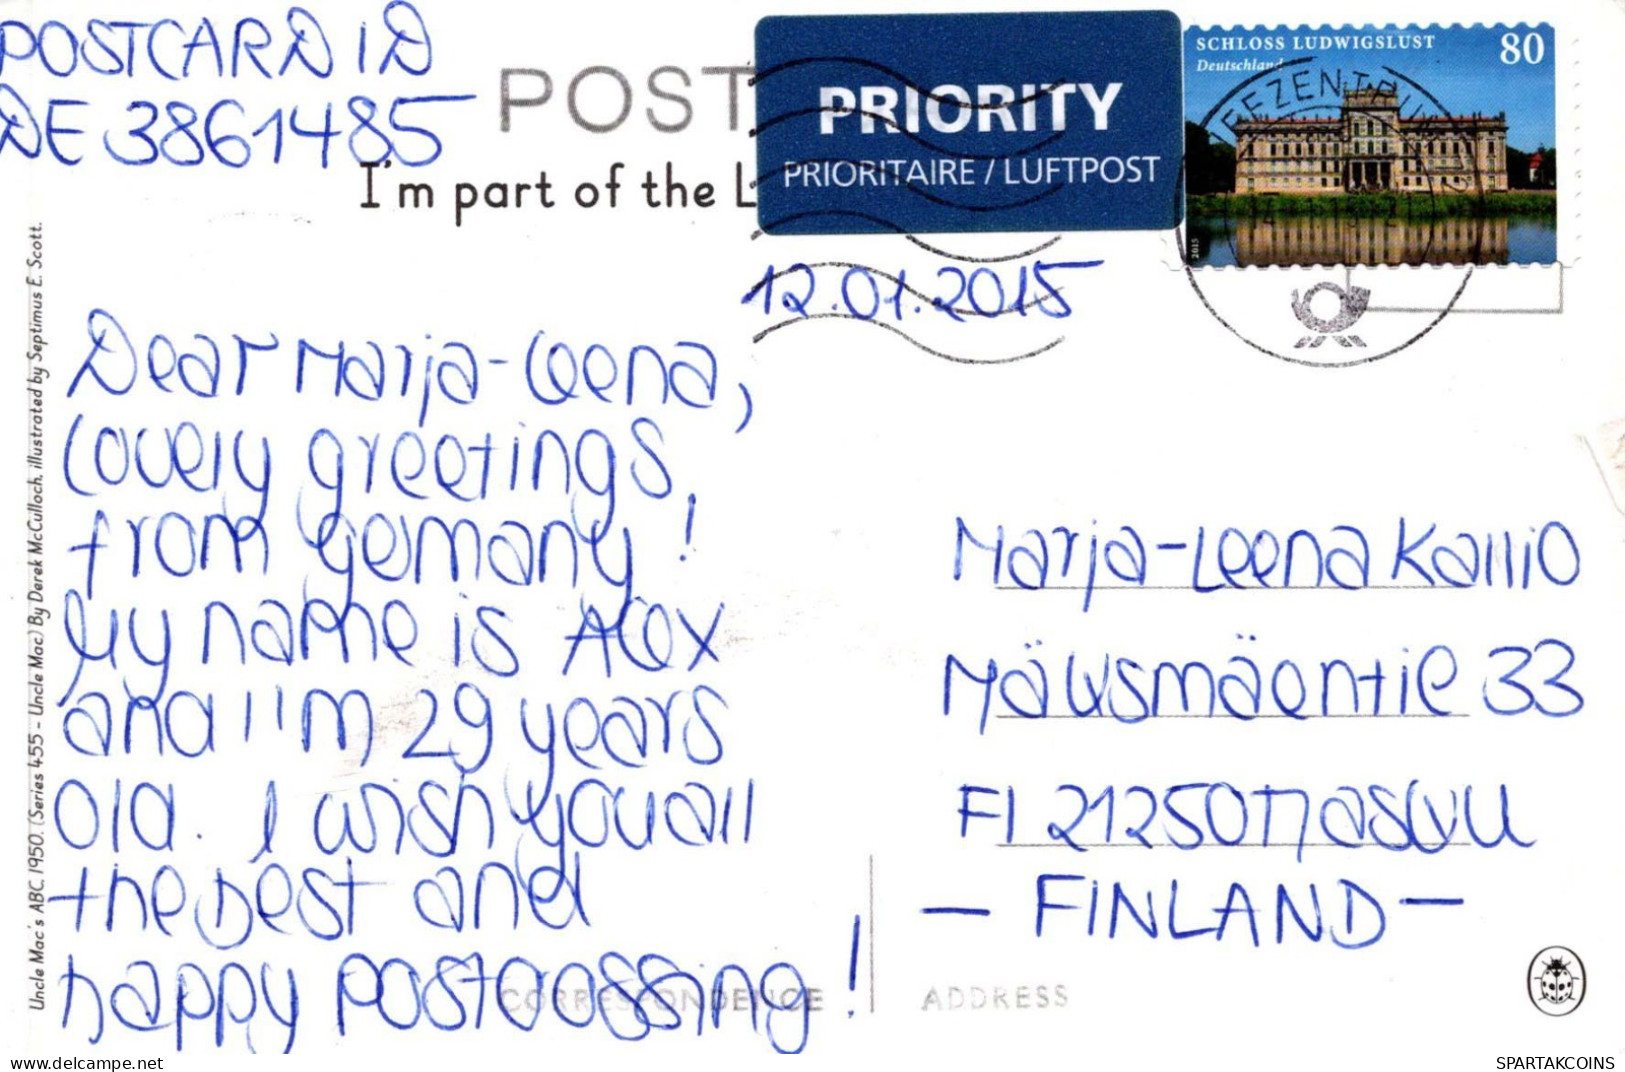 POSTCARD ID
DE 3861485
POST
I'm part of the L
PRIORITY
PRIORITAIRE / LUFTPOST
SCHLOSS LUDWIGSLUST
Deutschland
80
2015
12.01.2015
Dear Marja-Leena,
lovely greetings
from Germany!
My name is Alex
and I'm 29 years
old. I wish you all
the best and
happy postcrossing!
CORRESPONDENCE
Marja-Leena Kallio
33
FI 21250 Masku
- FINLAND -
ADDRESS
Uncle Mac's ABC 1950. (Series 455 - Uncle Mac) By Derek McCulloch, illustrated by Septimus E. Scott.
delcampe.net
SPARTAKCOINS